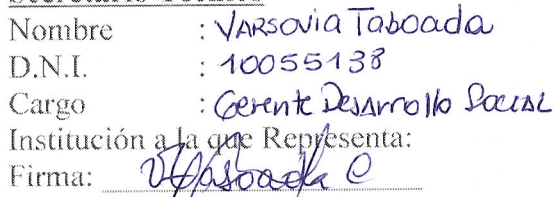 Nombre : Varsovia Taboada
D.N.I. : 10055138
Cargo : Gerente Desarrollo Social
Institución a la que Representa:
Firma: VTaboada C